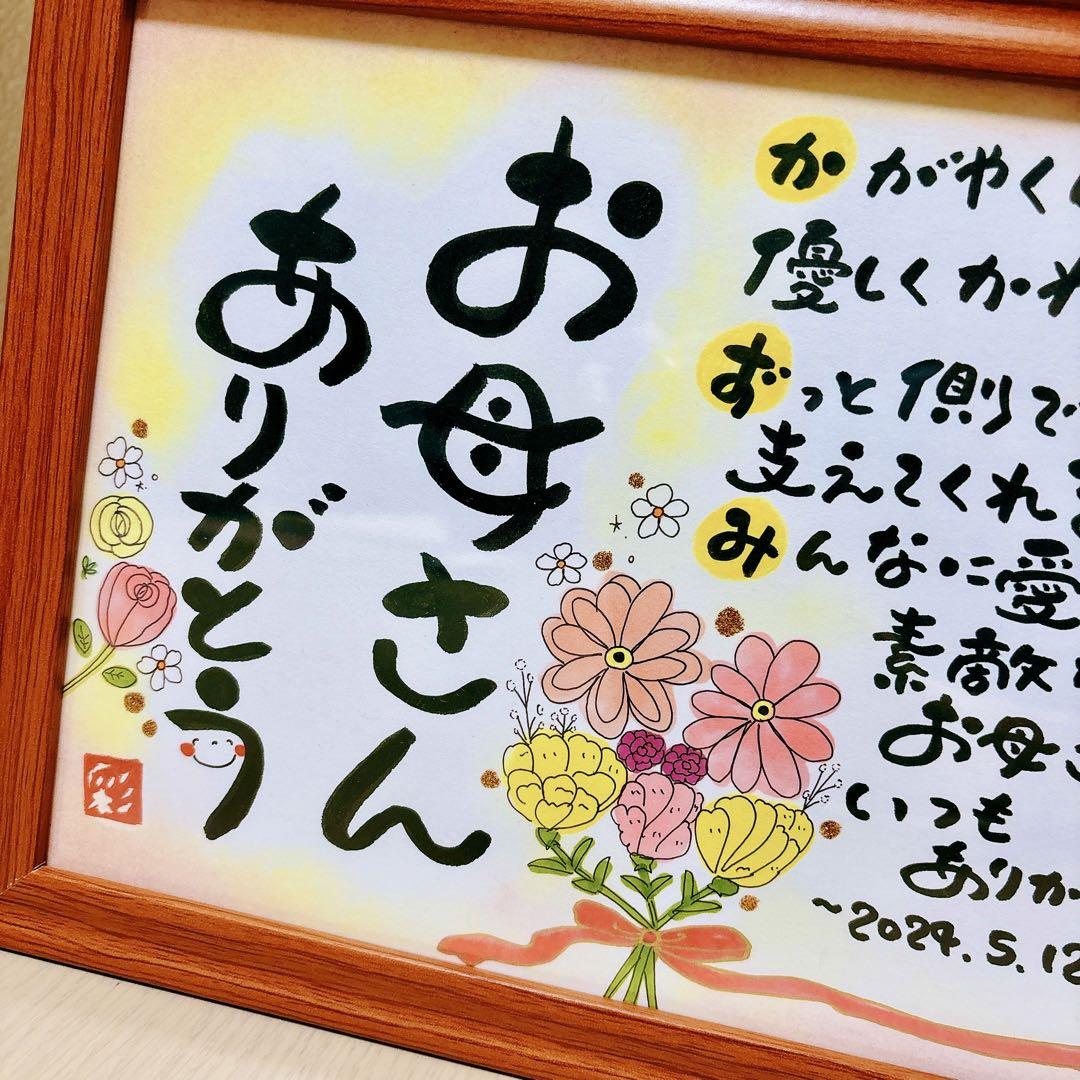 お母さん
ありがとう
かがやく
優しくかわ
ずっと側で
支えてくれ
みんなに愛
素敵
お母さ
いつも
ありが
~2024.5.12